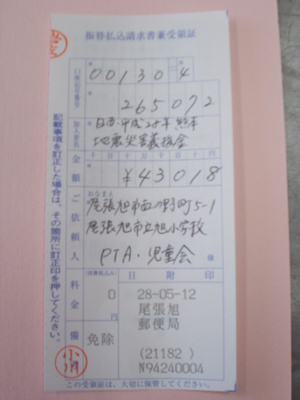 振替払込請求書兼受領証
口座記号番号
00130 4
265072
加入者名
日赤平成28年熊本
地震災害義援金
金額
千 百 十 万 千 百 十 円
¥43018
ご依頼人
おなまえ
尾張旭市
5-1
尾張旭市立旭小学校
PTA・児童会
様
料金
(消費税込み)
0
円
備
免除
日附印
28-05-12
尾張旭
郵便局
(21182)
N94240004
記載事項を訂正した場合は、その箇所に訂正印を押してください。
この受領証は、大切に保管してください。